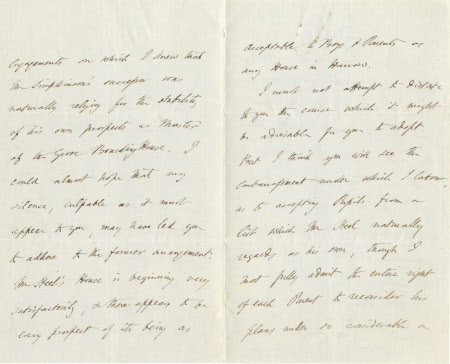 engagements on which I knew that
Mr Simpkinson's successor was
naturally relying for the stability
of his own prospects as Master
of the Grove Boarding House. I
could almost hope that my
silence, culpable as it must
appear to you, may have led you
to adhere to the former arrangement.
Mr Steel's House is beginning very
satisfactorily, & there appears to be
every prospect of its being as
acceptable to Boys & Parents as
any House in Harrow.
I must not attempt to dictate
to you the course which it might
be advisable for you to adopt
But I think you will see the
embarrassment under which I labour,
as to accepting Pupils from a
list which Mr Steel naturally
regards as his own, though I
most fully admit the entire right
of each Parent to reconsider his
plans under so considerable a